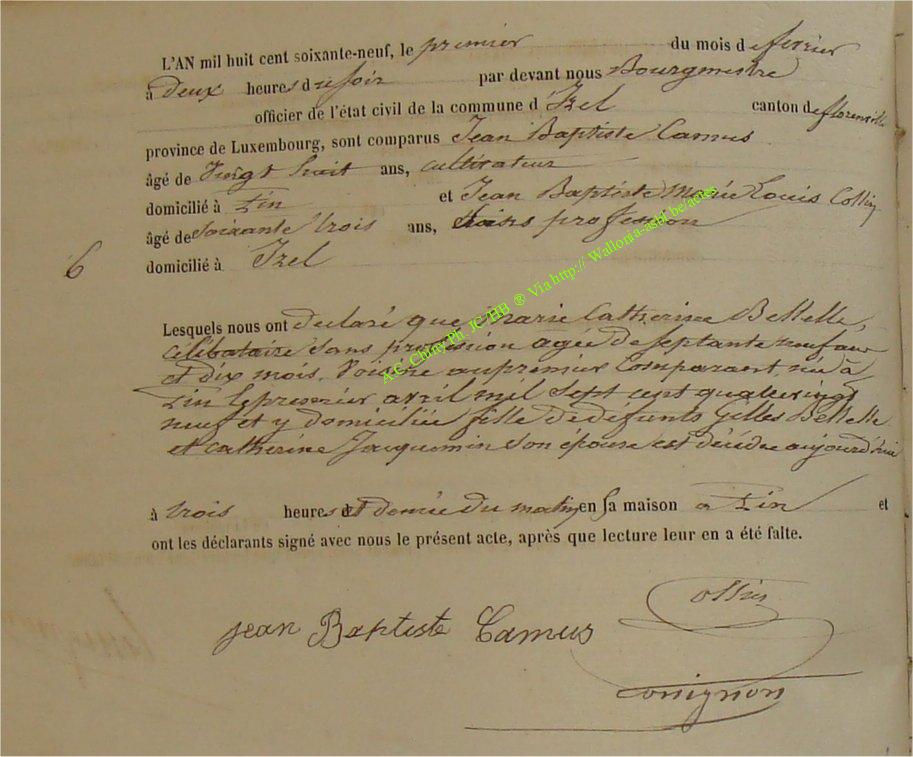 L'AN mil huit cent soixante-neuf, le premier du mois de février
à deux heures du soir par devant nous Bourgmestre
officier de l'état civil de la commune d'Izel canton de florenville
province de Luxembourg, sont comparus Jean Baptiste Camus
âgé de Vingt huit ans, cultivateur
domicilié à Pin et Jean Baptiste Marie Louis Collin
âgé de soixante trois ans, sans profession
6 domicilié à Izel
Lesquels nous ont declaré que Marie Catherine
celibataire sans profession agée de septante neuf ans
et dix mois, Voisine au premier Comparant, née à
Pin le premier avril mil sept cent quatrevingt
neuf et y domiciliée fille de defunts Gilles
et Catherine Jacquemin son épouse est décédée aujourd'hui
à trois heures et demie du matin en sa maison à Pin et
ont les déclarants signé avec nous le présent acte, après que lecture leur en a été faite.
Collin
Jean Baptiste Camus
A.C. Chiny Ph. JC HB ® Via http:// Wallonia-asbl.be/actes